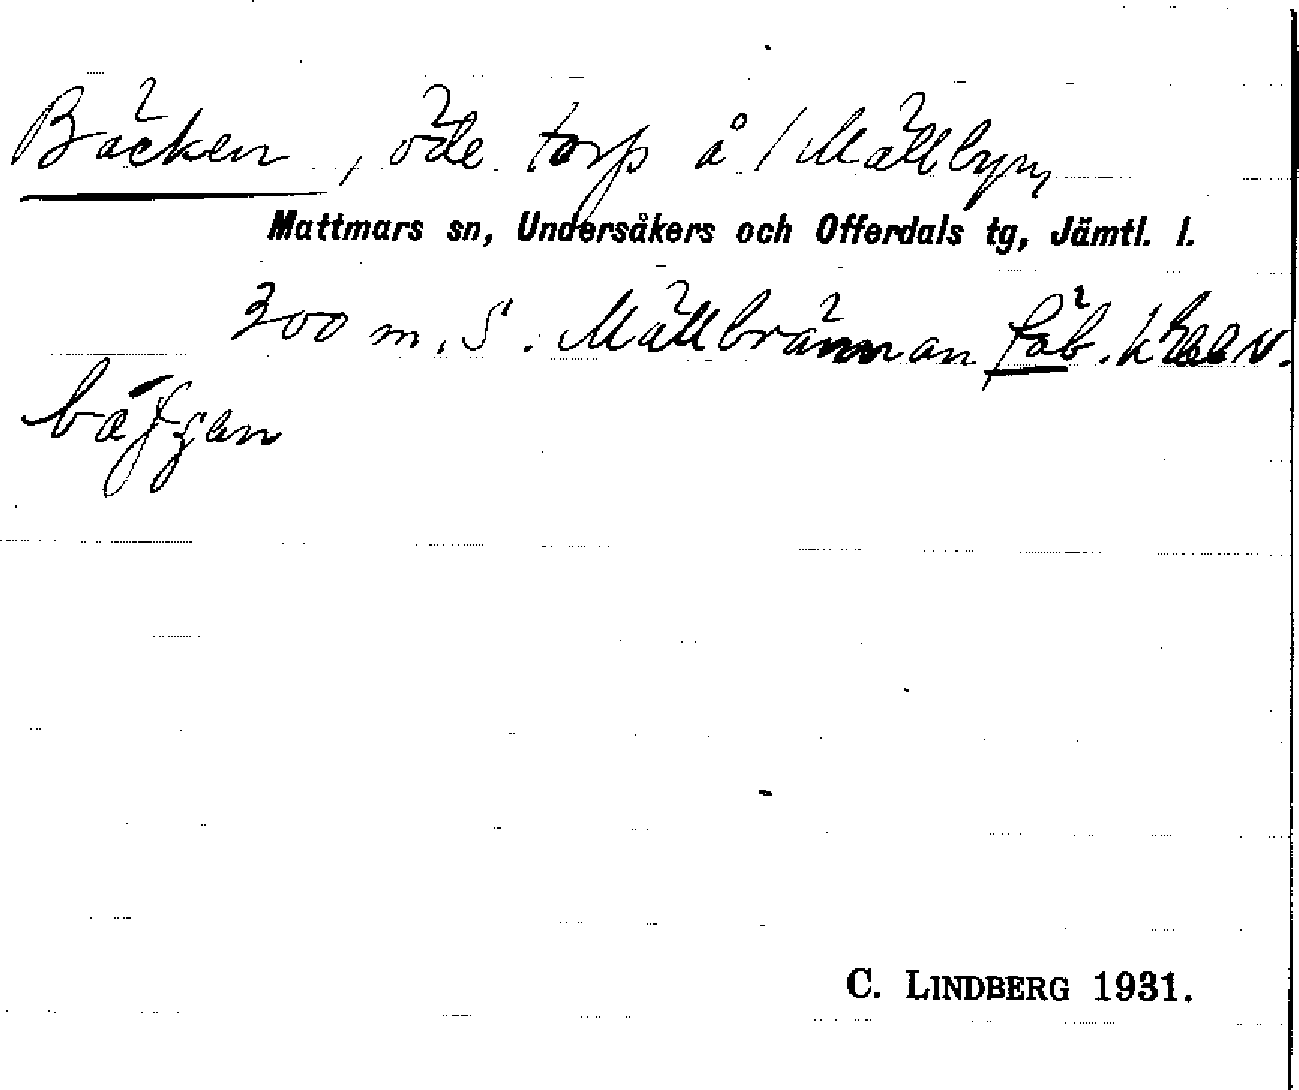 Bäcken, öde torp å / Mällbyn,
Mattmars sn, Undersåkers och Offerdals tg, Jämtl. l.
300 m. S. Mällbrännan fäb.
C. LINDBERG 1931.